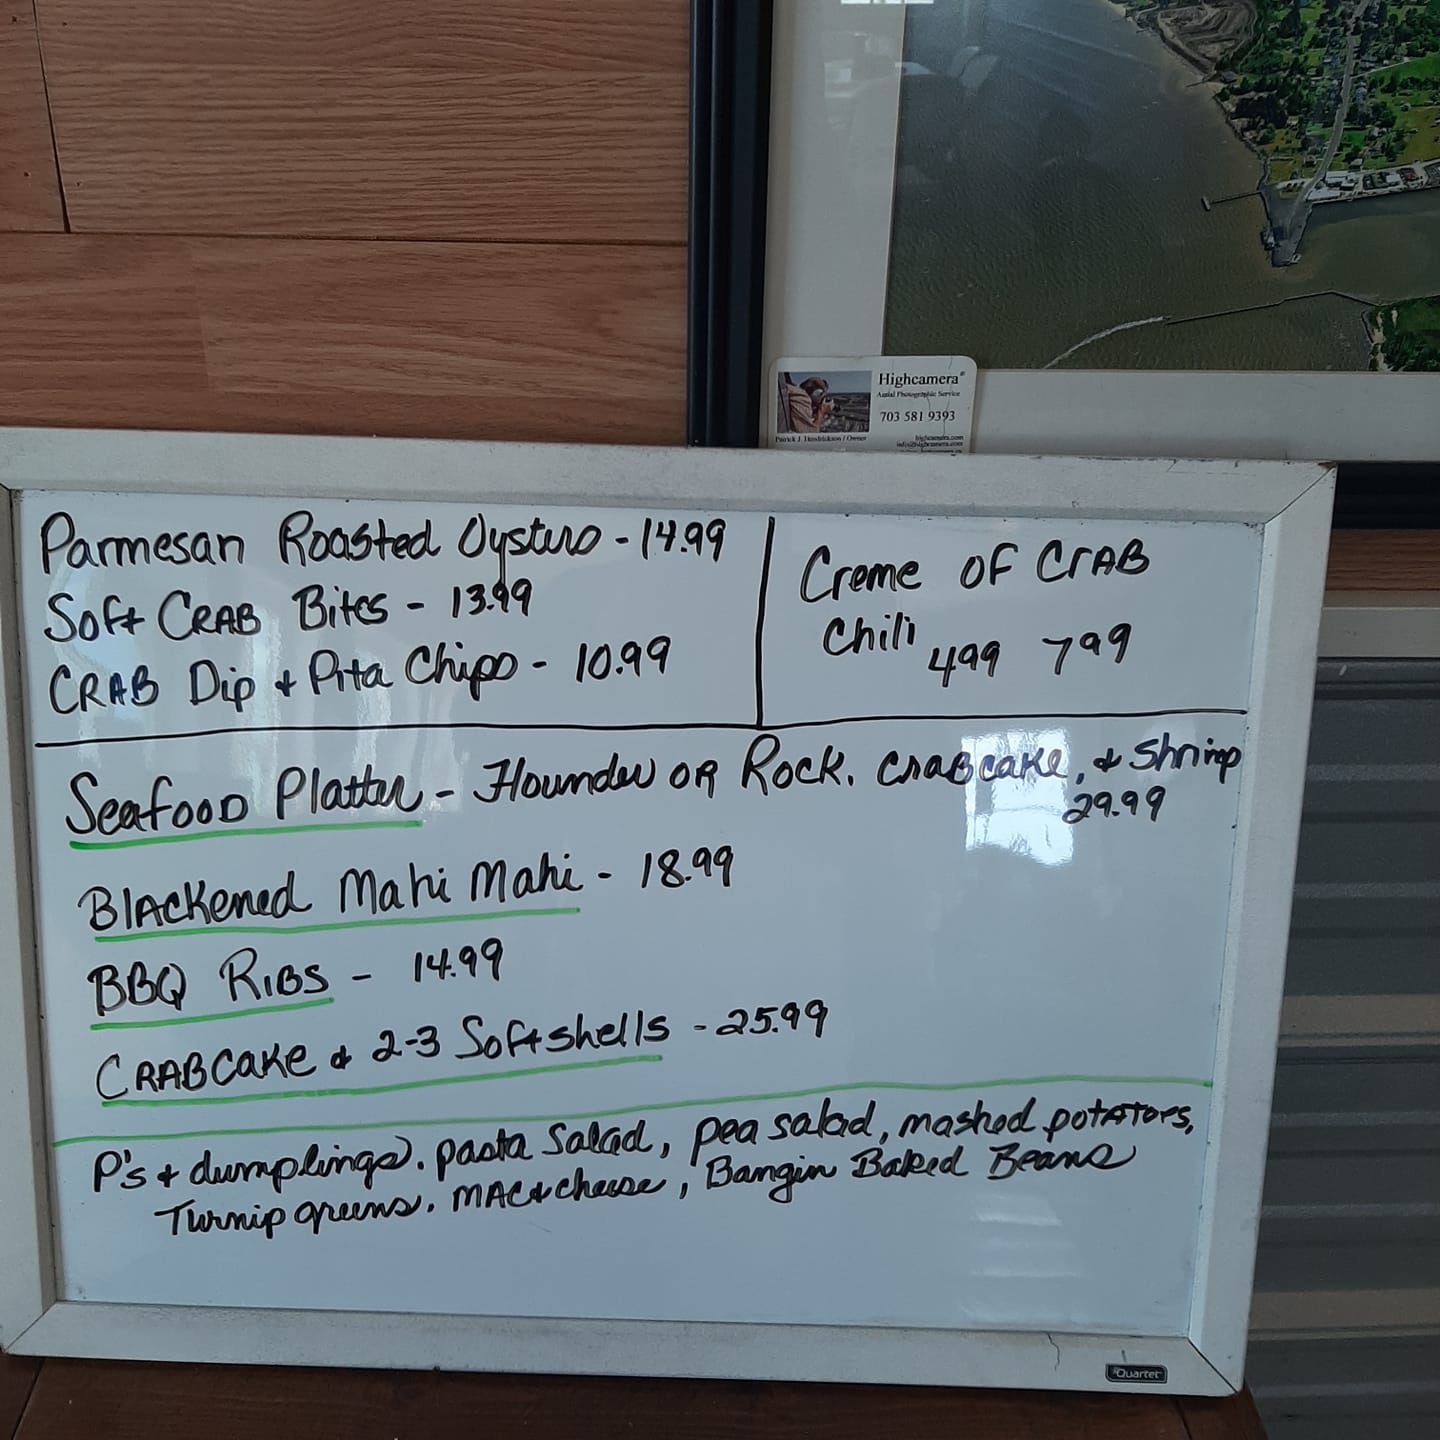 Highcamera®
Aerial Photographic Service
703 581 9393
Patrick J. Hendrickson / Owner
highcamera.com
info@highcamera.com
Parmesan Roasted Oysters - 14.99
Soft CRAB Bites - 13.99
CRAB Dip + Pita Chips - 10.99
Creme OF CrAB
Chili 499 799
Seafood Platter - Flounder OR Rock, CrabCake, + Shrimp
29.99
Blackened Mahi Mahi - 18.99
BBQ RIBS - 14.99
CRABCAKE & 2-3 Softshells - 25.99
P's + dumplings, pasta Salad, pea salad, mashed potatoes,
Turnip greens, MAC+cheese, Bangin Baked Beans
Quartet